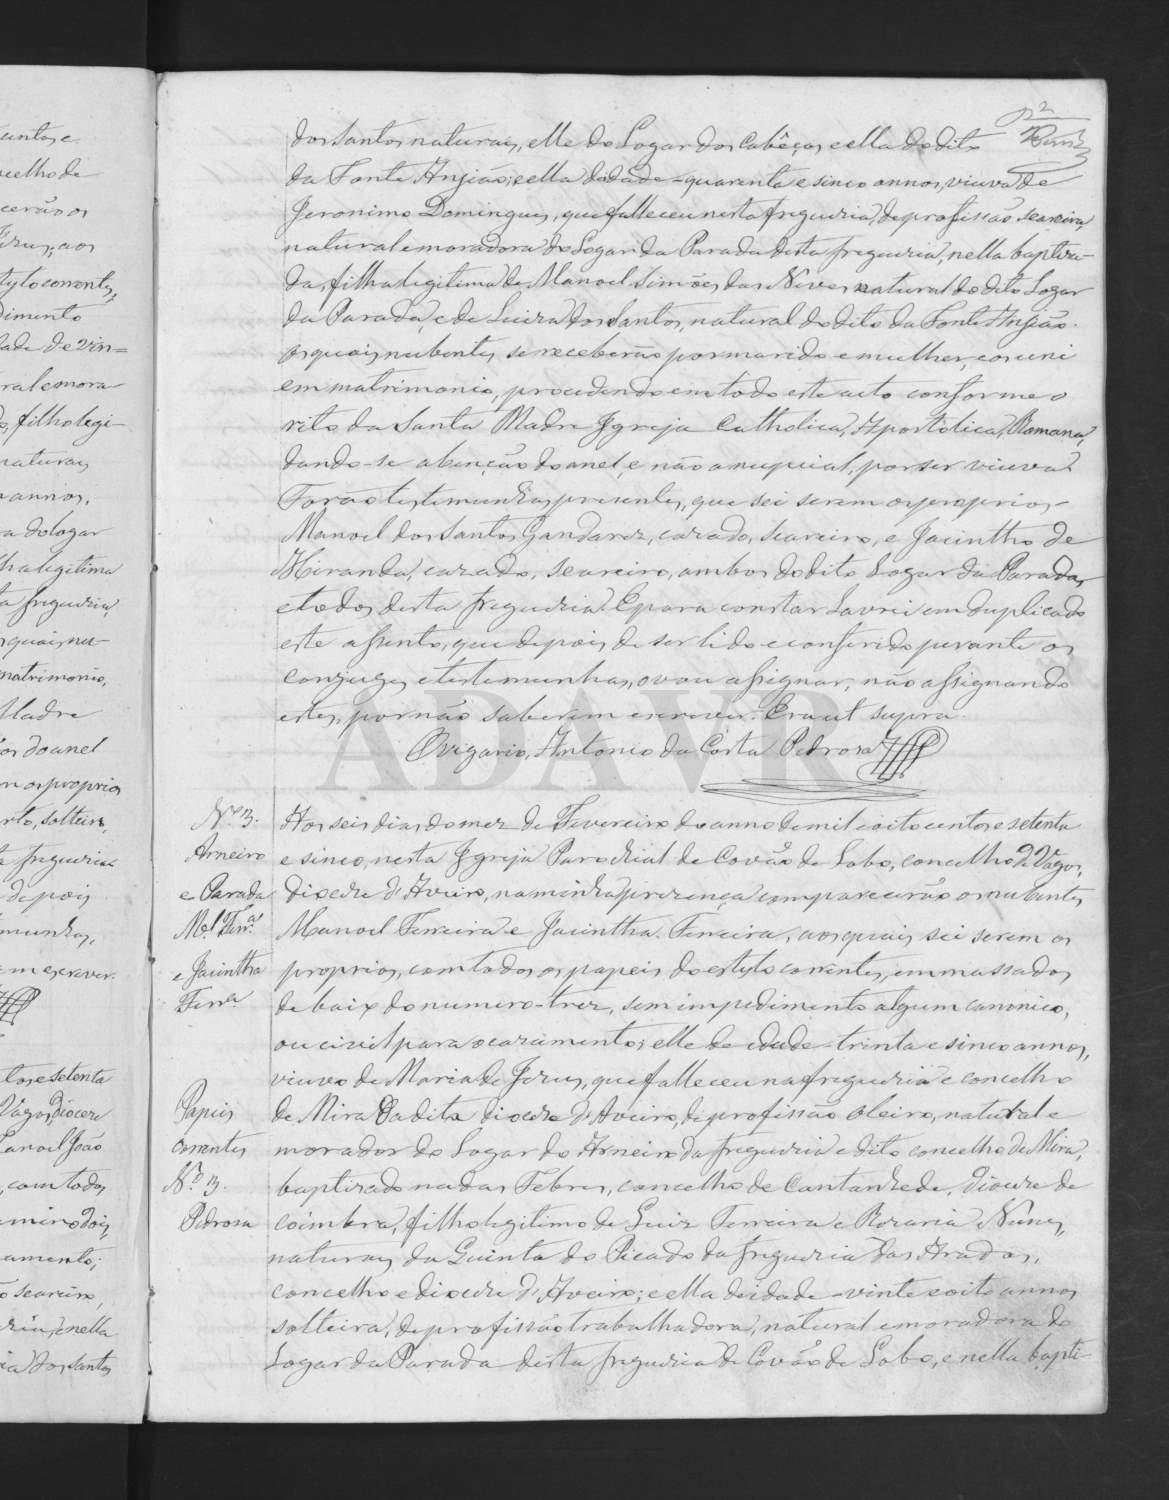 2
dos Santos, naturais, elle do Logar dos Cabêços, e ella do dito
da Fonte Angião; e ella d'idade - quarenta e sinco annos, viuva de
Jeronimo Domingues, que falleceu nesta freguezia, de profissão seareira,
natural e moradora do Logar da Parada desta freguezia, nella baptiza-
da, filha legitima de Manoel Simões das Neves natural do dito Logar
da Parada, e de Luiza dos Santos, natural do dito da Fonte Angião.
os quais nubentes, se receberão por marido e mulher, e os uni
em matrimonio, procedendo em todo este acto conforme o
rito da Santa Madre Igreja Catholica, Apostolica, Romana,
dando-se a benção do anel, e não a nupcial, por ser viuva.
Forão testemunhas presentes, que sei serem os proprios -
Manoel dos Santos Gandarez, cazado, seareiro, e Jacintho de
Miranda, cazado, seareiro, ambos do dito Logar da Parada,
e todos desta freguezia. E para constar lavrei em duplicado
este assento, que depois de ser lido e conferido perante os
conjuges, e testemunhas, o vou assignar, não assignando
estes, por não saberem escrever. Era ut supra.
O vigario, Antonio da Costa Pedrosa
ADAVR
Nº 3.
Arneiro
e Parada
Mel. Ferrª
e Jacintha
Ferrª
Aos seis dias do mez de Fevereiro do anno de mil e oito centos e setenta
e sinco, nesta Igreja Parochial de Covão do Lobo, concelho de Vagos,
diocese d'Aveiro, na minha prezença comparecerão os nubentes
Manoel Ferreira e Jacintha Ferreira, aos quais sei serem os
proprios, com todos os papeis do estylo correntes, emmassados
de baixo do numero - trez, sem impedimento algum canonico,
ou civil para o cazamento; elle de idade - trinta e sinco annos,
viuvo de Maria de Jezus, que falleceu na freguezia e concelho
Papeis
correntes
Nº 3.
Pedrosa
de Mira da dita diocese d'Aveiro, de profissão oleiro, natural e
morador do Logar do Arneiro da freguezia e dito concelho de Mira,
baptizado na das Febres, concelho de Cantanhede, diocese de
Coimbra, filho legitimo de Luiz Ferreira e Rozaria Nunes,
naturaes da Quinta do Picado da freguezia das Aradas,
concelho e diocese d'Aveiro; e ella de idade - vinte e oito annos
solteira, de profissão trabalhadora, natural e moradora do
Logar da Parada desta freguezia de Covão do Lobo, e nella bapti-